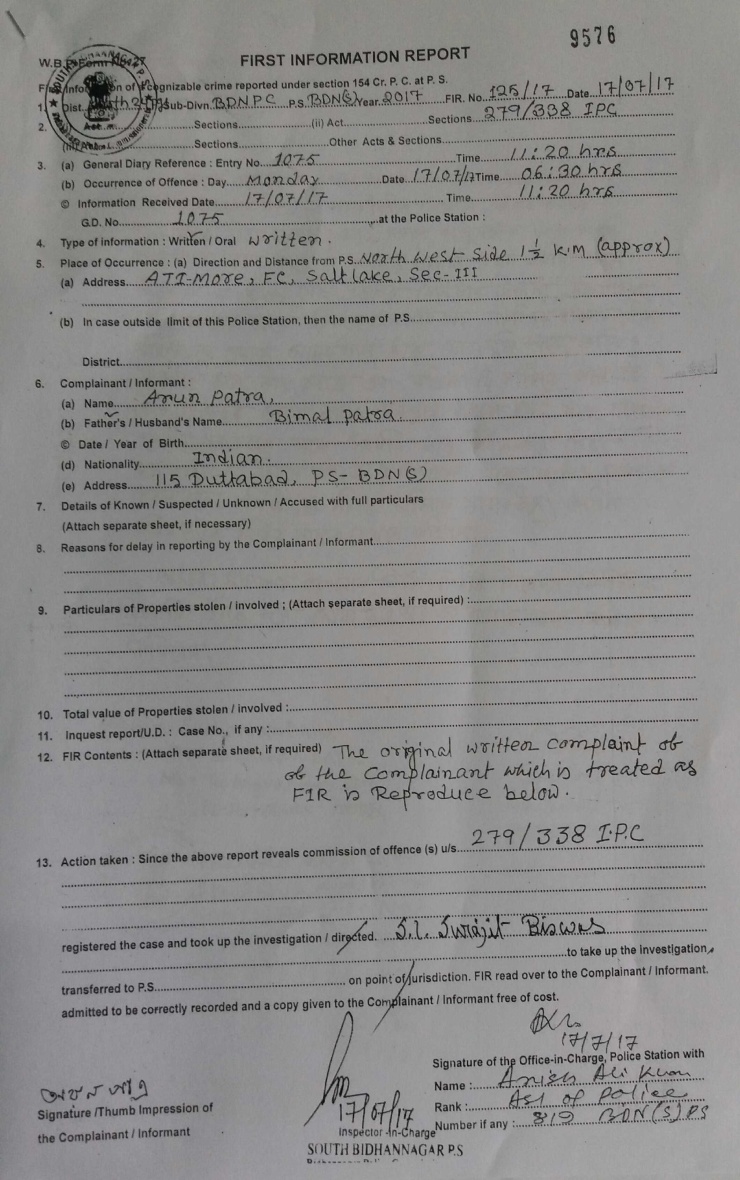 9576
FIRST INFORMATION REPORT
of cognizable crime reported under section 154 Cr. P. C. at P. S.
1. Dist. Sub-Divn. BDNPC P.S. BDN(S) Year 2017 FIR. No. 125/17 Date 17/07/17
2. Sections (ii) Act Sections 279/338 IPC
Sections Other Acts & Sections
3. (a) General Diary Reference : Entry No. 1075 Time 11:20 hrs
(b) Occurrence of Offence : Day Monday Date 17/07/17 Time 06:30 hrs
© Information Received Date 17/07/17 Time 11:20 hrs
G.D. No. 1075 at the Police Station :
4. Type of information : Written / Oral written.
5. Place of Occurrence : (a) Direction and Distance from P.S. North West Side 1½ K.M (approx)
(a) Address ATI-More, FC, Saltlake, Sec-III
(b) In case outside limit of this Police Station, then the name of P.S.
District
6. Complainant / Informant :
(a) Name Arun Patra,
(b) Father's / Husband's Name Bimal Patra
© Date / Year of Birth
(d) Nationality Indian.
(e) Address 115 Duttabad, PS- BDN(S)
7. Details of Known / Suspected / Unknown / Accused with full particulars
(Attach separate sheet, if necessary)
8. Reasons for delay in reporting by the Complainant / Informant
9. Particulars of Properties stolen / involved ; (Attach separate sheet, if required) :
10. Total value of Properties stolen / involved :
11. Inquest report/U.D. : Case No., if any :
12. FIR Contents : (Attach separate sheet, if required) The original written complaint of
of the Complainant which is treated as
FIR is Reproduce below.
13. Action taken : Since the above report reveals commission of offence (s) u/s 279/338 I.P.C
registered the case and took up the investigation / directed. S.I. Surajit Biswas
to take up the investigation,
transferred to P.S. on point of jurisdiction. FIR read over to the Complainant / Informant.
admitted to be correctly recorded and a copy given to the Complainant / Informant free of cost.
17/7/17
Signature of the Office-in-Charge, Police Station with
Name : Anish Ali Khan
Rank : ASI of Police
Number if any : 819 BDN(S) PS
Signature /Thumb Impression of
the Complainant / Informant
17/07/17
Inspector-in-Charge
SOUTH BIDHANNAGAR P.S